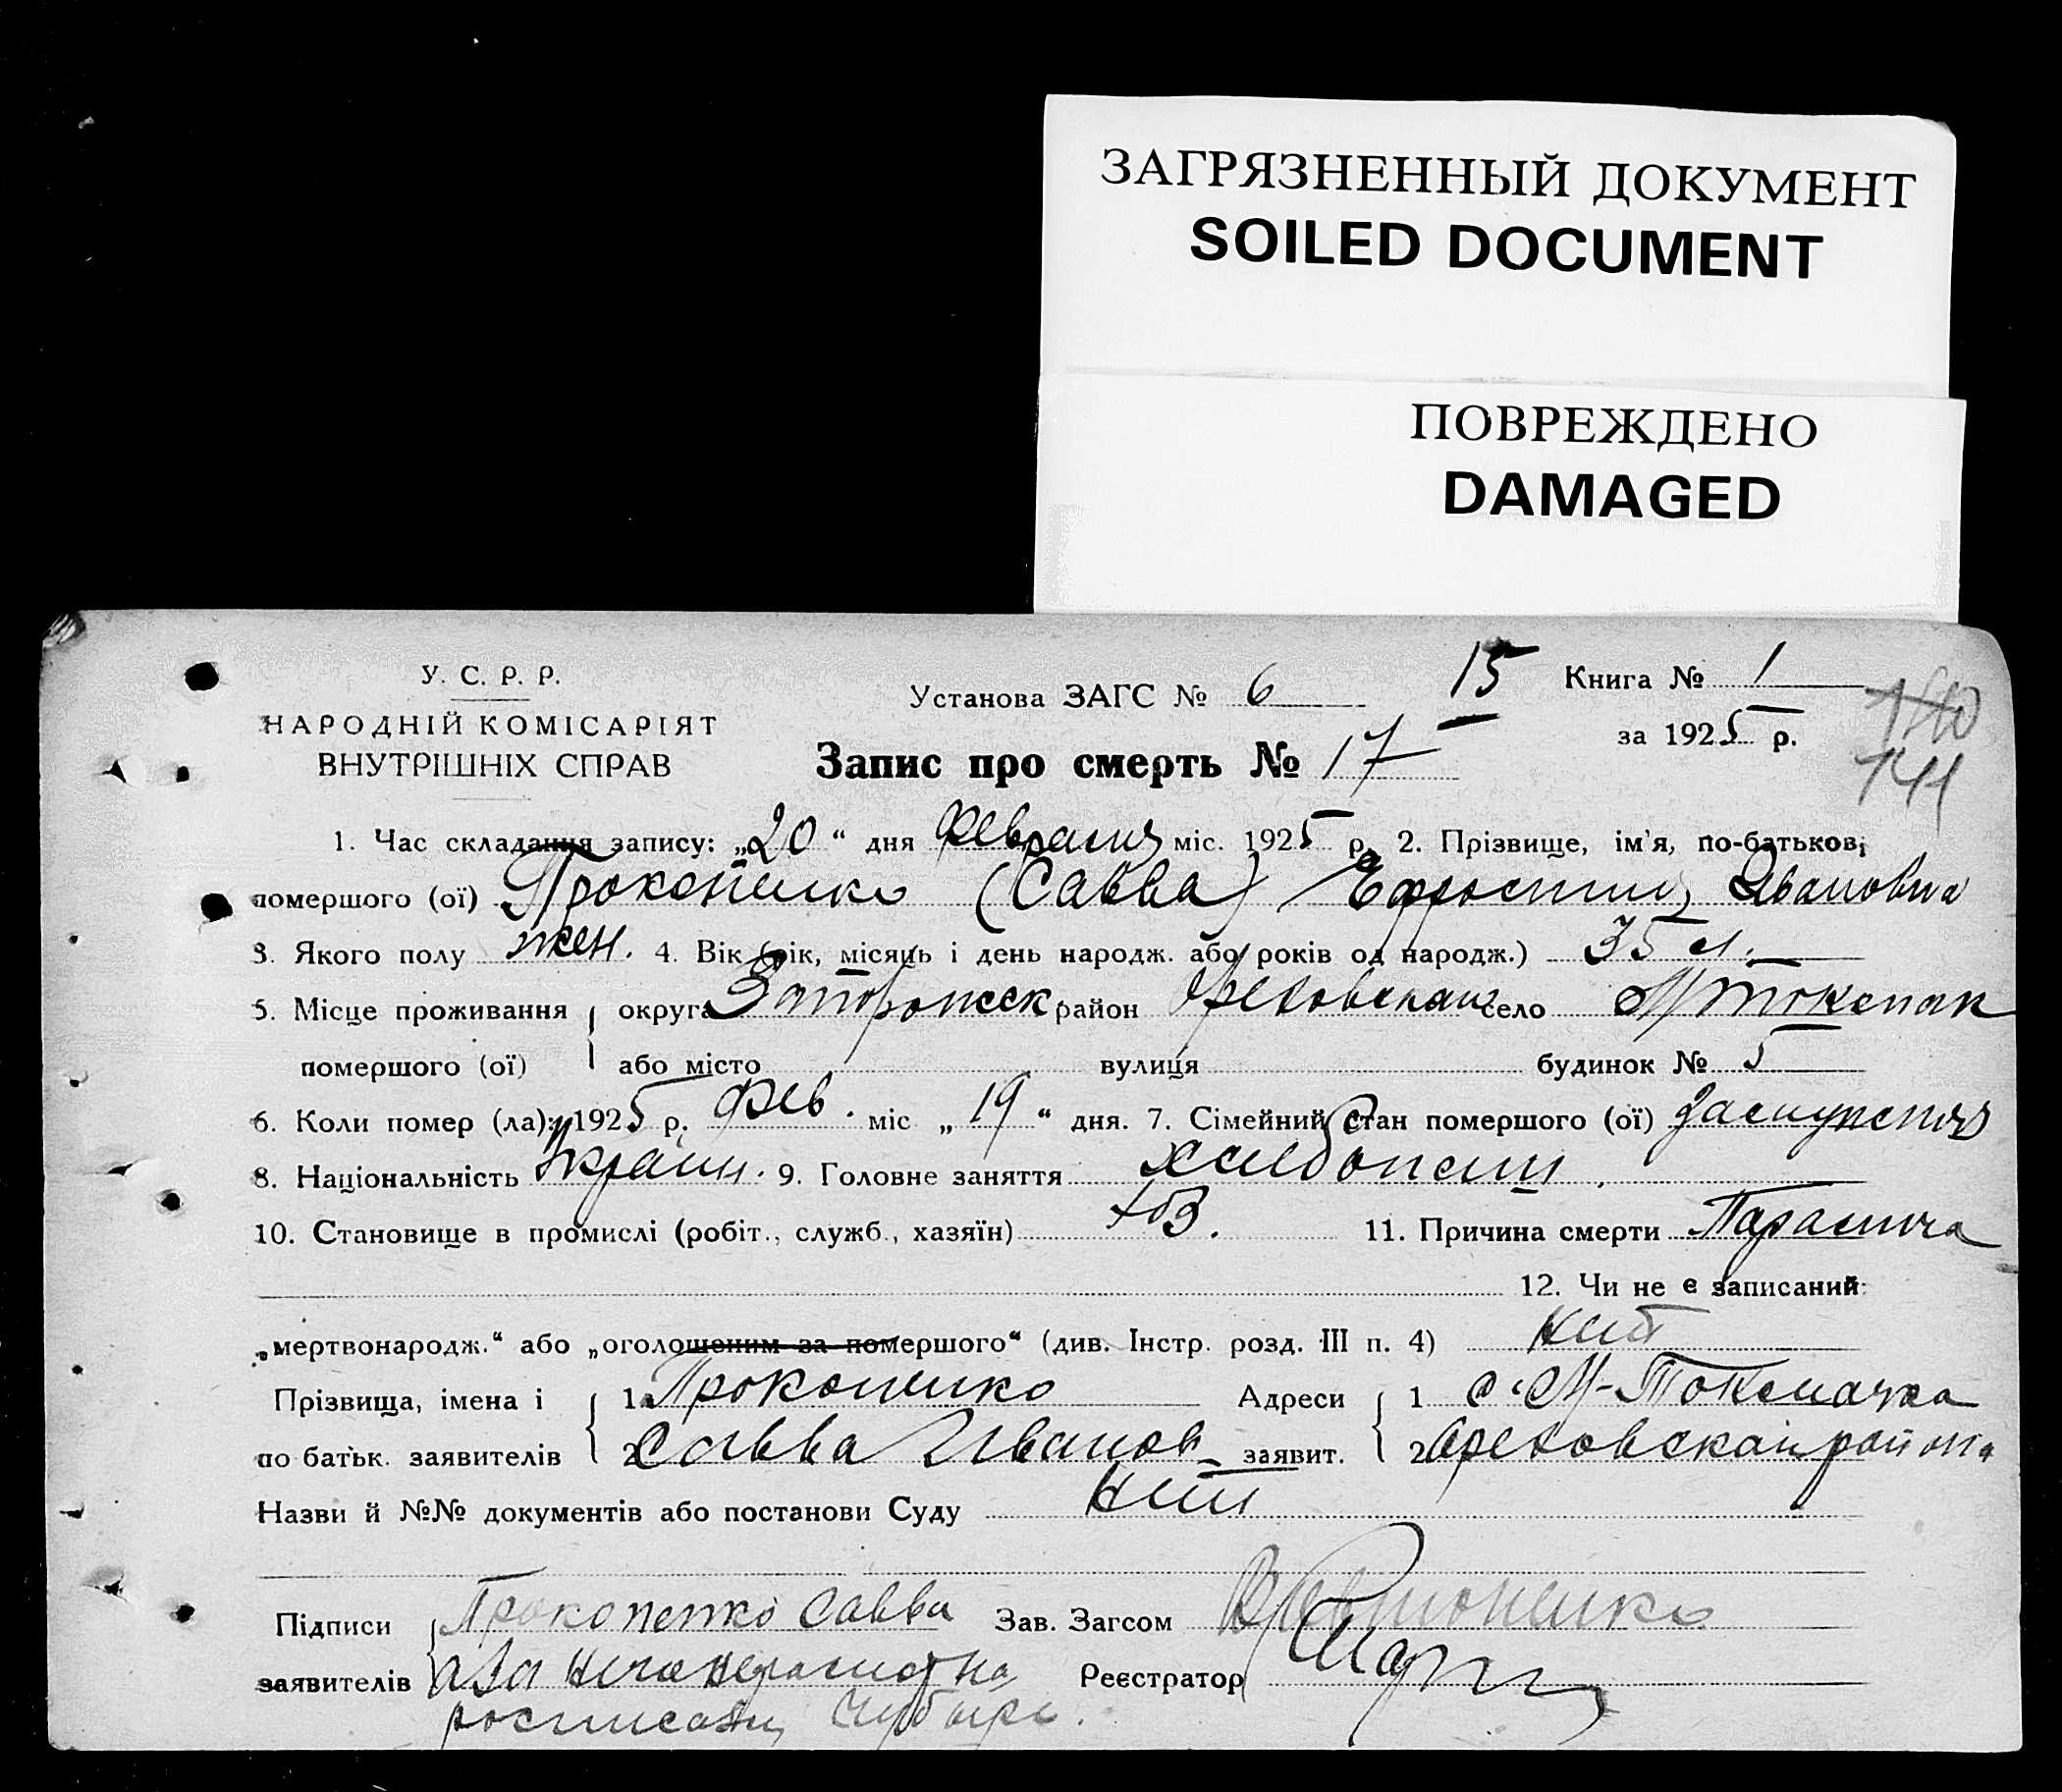 ЗАГРЯЗНЕННЫЙ ДОКУМЕНТ
SOILED DOCUMENT
ПОВРЕЖДЕНО
DAMAGED
У. С. Р. Р.
НАРОДНІЙ КОМІСАРІЯТ
ВНУТРІШНІХ СПРАВ
Установа ЗАГС № 6
15
Книга № 1
за 1925 р.
140
141
Запис про смерть № 17
1. Час складання запису: „20“ дня февраля міс. 1925 р. 2. Прізвище, ім'я, по-батькові
помершого (ої) Прокопенко (Савва) Ефросиния Ивановна
3. Якого полу жен. 4. Вік (рік, місяць і день народж. або років од народж.) 35 л.
5. Місце проживання округа Запорожск. район Ореховский село М Токмак
помершого (ої) або місто вулиця будинок № 5
6. Коли помер (ла): 1925 р. Фев. міс „19“ дня. 7. Сімейний стан помершого (ої) замужняя
8. Національність Україн. 9. Головне заняття хлебопаш.
10. Становище в промислі (робіт., служб., хазяїн) хоз. 11. Причина смерти
12. Чи не є записаний
„мертвонародж.“ або „оголошеним за помершого“ (див. Інстр. розд. III п. 4) нет
Прізвища, імена і 1. Прокопенко Адреси 1 с. М-Токмачка
по батьк. заявителів 2 Савва Иванов заявит. 2 Ореховского района
Назви й №№ документів або постанови Суду нет
Підписи Прокопенко Савва Зав. Загсом
заявителів а за него неграмотна Реєстратор